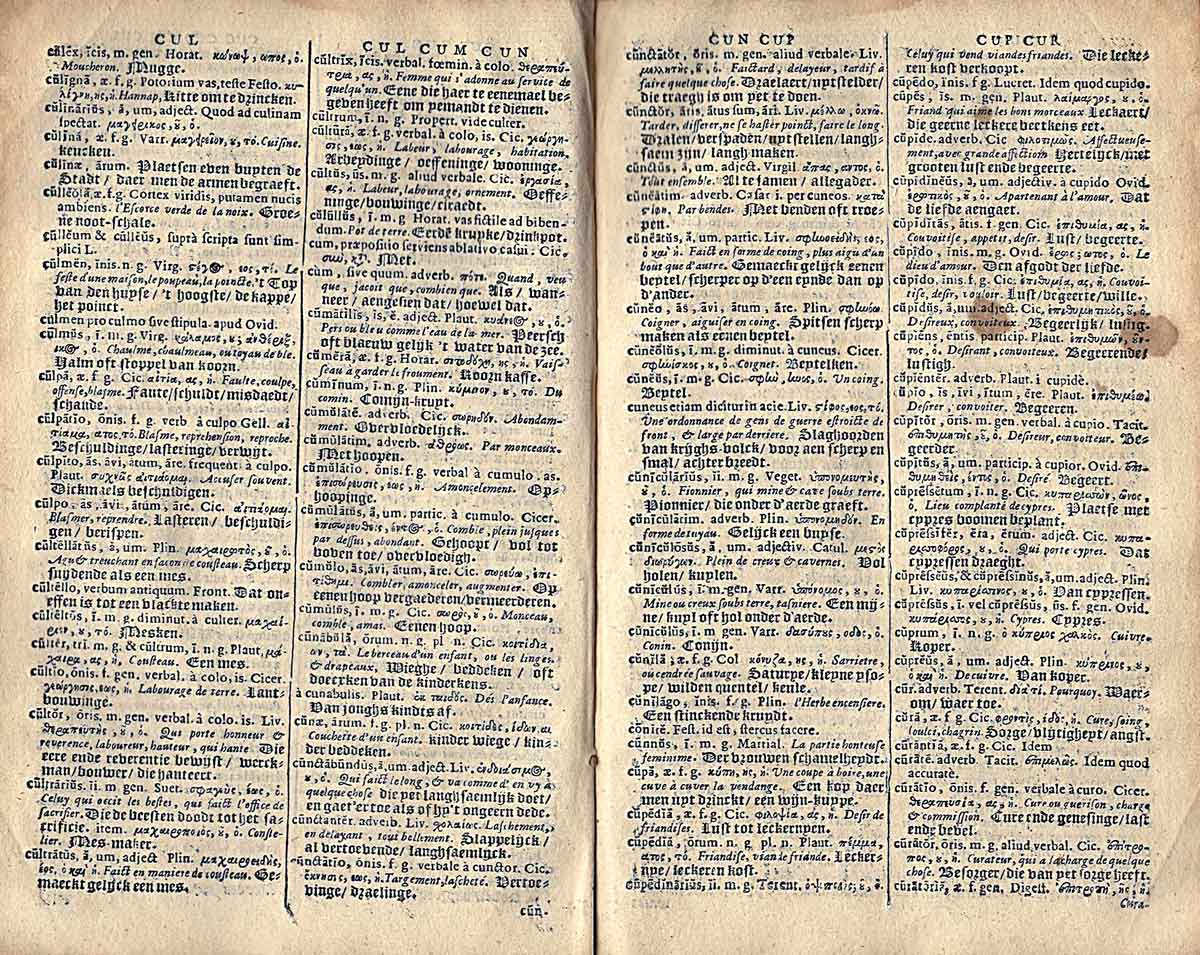 CUL
cŭlĕx, ĭcis, m. gen. Horat. κώνωψ, ωπος, ὁ.
Moucheron. Mugge.
cŭlĭgnă, æ f. g. Potorium vas, teste Festo. κυ-
Hannap, Kitte om te drincken.
cŭlīnārĭŭs, ă, um, adject. Quod ad culinam
spectat. μαγειρικὸς, ȣ, ὁ.
cŭlīnă, æ. f. g. Varr. μαγειρεῖον, ȣ, τό. Cuisine.
keucken.
cŭlīnæ, ārum. Plaetsen even buyten de
Stadt / daer men de armen begraeft.
cullĕolă, æ. f. g. Cortex viridis, putamen nucis
ambiens. l'Escorce verde de la noix. Groe-
ne noot schale.
cūllĕum & cūllĕŭs, suprà scripta sunt sim-
plici L.
cūlmĕn, ĭnis. n. g. Virg. τέγος, εος, τό. Le
feste d'une maison, le poupeau, la poincte. 't Top
van den huyse / 't hoogste / de kappe /
het poinct.
cūlmen pro culmo sive stipula. apud Ovid.
cūlmŭs, ī. m. g. Virg. κάλαμος, ȣ,
ὁ. Chaulme, chaulmeau, ou tuyau de blé.
Halm oft stoppel van koorn.
cūlpă, æ. f. g. Cic. αἰτία, ας, ἡ. Faulte, coulpe,
offense, blasme. Faute / schuldt / misdaedt /
schande.
cūlpātĭo, ōnis. f. g. verb à culpo Gell.
ατος, τό. Blasme, reprehension, reproche.
Beschuldinge / lasteringe / verwijt.
cūlpĭto, ās. āvi, ātum, āre. frequent. à culpo.
Plaut. Accuser souvent.
Dickmaels beschuldigen.
cūlpo, ās, āvi, ātum, āre. Cic.
Blasmer, reprendre. Lasteren / beschuldi-
gen / berispen.
cūltēllātŭs, ă, um. Plin. μαχαιρωτὸς, ȣ, ὁ.
Agu & trenchant en façon de cousteau. Scherp
snydende als een mes.
cūltēllo, verbum antiquum. Front. Dat on-
effen is tot een vlackte maken.
cūltēllŭs, ī. m. g. diminut. à culter.
ȣ, τό. Mesken.
cūltĕr, trī. m. g. & cūltrum, ī. n. g. Plaut,
ας, ἡ. Cousteau. Een mes.
cūltĭo, ōnis. f. gen. verbal. à colo, is. Cicer.
εως, ἡ. Labourage de terre. Lant-
bouwinge.
cūltŏr, ōris. m. gen. verbal. à colo. is. Liv.
Qui porte honneur &
reverence, laboureur, hanteur, qui hante. Die
eere ende reverentie bewijst / werck-
man / bouwer / die hanteert.
cūltrārĭŭs, ĭi. m. gen. Suet. ὁ.
Celuy qui occit les bestes, qui faict l'office de
sacrifier. Die de beesten doodt tot het sa-
crificie. item. μαχαιροποιὸς, ȣ, ὁ. Couste-
lier. Mes-maker.
cūltrātŭs, ă, um, adject Plin.
ὁ καὶ ἡ. Faict en maniere de cousteau. Ge-
maeckt gelijck een mes.
CUL CUM CUN
cūltrīx, īcis. verbal. fœmin. à colo.
ας, ἡ. Femme qui s'adonne au service de
quelqu'un. Eene die haer t'eenemael be-
geven heeft om yemandt te dienen.
cūltrum, ī. n. g. Propert. vide culter.
cūltūră, æ. f. g. verbal. à colo, is. Cic.
εως, ἡ. Labeur, labourage, habitation.
Arbeydinge / oeffeninge / wooninge.
cūltŭs, ūs. m. g. aliud verbale. Cic. ἐργασία,
ας, ἡ. Labeur, labourage, ornement. Oeffe-
ninge / bouwinge / cieraedt.
cŭlūllŭs, ī. m. g. Horat. vas fictile ad biben-
dum. Pot de terre. Eerde kruycke / drinckpot.
cum, præpositio serviens ablativo casui. Cic.
σὺν, Met.
cùm, sive quum. adverb. πότε. Quand, veu
que, jacoit que, combien que. Als / wan-
neer / aengesien dat / hoewel dat.
cūmātĭlis, is, ĕ. adject. Plaut. ȣ, ὁ.
Pers ou bleu comme l'eau de la mer. Peersch
oft blaeuw gelijck 't water van de zee.
cŭmĕră, æ. f. g. Horat. ης, ἡ. Vais-
seau à garder le froument. Koorn kasse.
cŭmīnum, ī. n. g. Plin. κύμινον, ȣ, τό. Du
comin. Comijn-kruyt.
cŭmŭlātē. adverb. Cic. σωρηδόν. Abondam-
ment. Overvloedelijck.
cŭmŭlātim. adverb. ἀθρόως. Par monceaux.
Met hoopen.
cŭmŭlātĭo, ōnis. f. g. verbal à cumulo. as.
εως, ἡ. Amoncelement. Op-
hoopinge.
cŭmŭlātŭs, ă, um. partic. à cumulo. Cicer.
ὁ. Comble, plein jusques
par dessus, abondant. Gehoopt / vol tot
boven toe / overvloedigh.
cŭmŭlo, ās, āvi, ātum, āre. Cic. σωρεύω, ἐπι-
τίθημι. Combler, amonceler, augmenter. Op
eenen hoop vergaederen / vermeerderen.
cŭmŭlŭs, ī. m. g. Cic. σωρὸς, ȣ, ὁ. Monceau,
comble, amas. Eenen hoop.
cūnăbŭlă, ōrum. n. g. pl n. Cic. κοιτίδια,
ων, τά. Le berceau d'un enfant, ou les linges
& drapeaux. Wieghe / beddeken / oft
doecxken van de kinderkens.
à cunabulis. Plaut. ἐκ παιδὸς. Dés l'enfance.
Van jonghs kindts af.
cūnæ, ārum. f. g. pl. n. Cic. κοιτίδες,
Couchette d'un enfant. kinder wiege / kin-
der beddeken.
cūnctābūndŭs, ă, um, adject. Liv.
ȣ, ὁ. Qui faict le long, & va comme d'en vy à
quelque chose. die yet langhsaemlijck doet /
en gaet'er toe als of hy't ongeern dede.
cūnctānter. adverb. Liv. Laschement,
en delayant, tout bellement. Slappelijck /
al vertoevende / langhsaemlijck.
cūnctātĭo, ōnis. f. g. verbale à cunctor. Cic.
ὄκνησις, εως, ἡ. Targement, lascheté. Vertoe-
vinge / draelinge.
cŭn-
CUN CUP
cūnctātŏr, ōris. m. gen. aliud verbale. Liv.
ȣ, ὁ. Faictard, delayeur, tardif à
faire quelque chose. Draelaert / uytstelder /
die traegh is om yet te doen.
cūnctŏr, āris. ātus sum, āri. Liv. μέλλω, ὀκνῶ.
Tarder, differer, ne se haster poinct, faire le long.
Dralen / verspaden / uytstellen / langh-
saem zijn / langh maken.
cūnctŭs, ă, um. adject. Virgil ἅπας, αντος, ὁ.
Tout ensemble. Al te samen / allegader.
cŭnĕātim. adverb. Cæsar i. per cuneos. κατὰ
Par bendes. Met benden oft troe-
pen.
cŭnĕātŭs, ă, um, partic. Liv. σφηνοειδὴς, εος,
ὁ καὶ ἡ. Faict en forme de coing, plus aigu d'un
bout que d'autre. Gemaeckt gelijck eenen
beytel / scherper op d'een eynde dan op
d'ander.
cŭnĕo, ās, āvi, ātum, āre. Plin. σφηνόω.
Coigner, aiguiser en coing. Spitsen scherp
maken als eenen beytel.
cŭnĕŏlŭs, ī. m. g. diminut. à cuneus. Cicer.
σφηνίσκος, ȣ, ὁ. Coignet. Beytelken.
cŭnĕŭs, ī. m. g. Cic. σφὴν, ηνος, ὁ. Un coing.
Beytel.
cuneus etiam dicitur in acie. Liv.
Une ordonnance de gens de guerre estroicte de
front, & large par derriere. Slaghoorden
van krijghs-volck / voor aen scherp en
smal / achter breedt.
cŭnīcŭlārĭŭs, ĭi. m. g. Veget.
ȣ, ὁ. Pionnier, qui mine & cave soubs terre.
Pionnier / die onder d'aerde graeft.
cŭnīcŭlātim. adverb. Plin. ὑπονομηδόν. En
forme de tuyau. Gelijck een buyse.
cŭnīcŭlōsŭs, ă, um. adjectiv. Catul. μεστὸς
Plein de creux & cavernes. Vol
holen / kuylen.
cŭnīcŭlŭs, ī. m. gen. Varr. ὑπόνομος, ȣ, ὁ.
Mine ou creux soubs terre, tasniere. Een mij-
ne / kuyl oft hol onder d'aerde.
cŭnīcŭlŭs, ī. m gen. Varr. δασύπυς, οδος, ὁ.
Conin. Conijn.
cŭnīlă, æ. f. g. Col κόνυζα, ης, ἡ. Sarriette,
ou cendrée sauvage. Saturye / kleyne yso-
pe / wilden quentel / kenle.
cŭnīlāgo, ĭnis. f. g. Plin. l'Herbe encensiere.
Een stinckende kruydt.
cūnīre. Fest. id est, stercus facere.
cūnnŭs, ī. m. g. Martial. La partie honteuse
feminime. Der vrouwen schamelheydt.
cūpă, æ. f. g. κύπη, ης, ἡ. Une coupe à boire, une
cuve à cuver la vendange. Een kop daer
men uyt drinckt / een wijn-kuype.
cūpēdĭă, æ. f. g. Cic. ας, ἡ. Desir de
friandises. Lust tot leckernyen.
cūpēdĭă, ōrum. n. g. pl n. Plaut. πέμμα,
ατος, τό. Friandise, viande friande. Lecker-
nye / leckeren kost.
cūpēdĭnārĭŭs, ĭi. m g. Terent.
CUP CUR
Celuy qui vend viandes friandes. Die lecke-
ren kost verkoopt.
cūpēdo, ĭnis. f. g Lucret. Idem quod cupido.
cūpēs, is. m. gen. Plaut. λαίμαργος, ȣ, ὁ.
Friand qui aime les bons morceaux Leckaert /
die geerne leckere beetkens eet.
cŭpĭde. adverb. Cic φιλοτίμως. Affectueuse-
ment, avec grande affection Hertelijck / met
grooten lust ende begeerte.
cŭpīdĭnĕŭs, ă, um. adjectiv. à cupido Ovid.
ȣ, ὁ. Apartenant à l'amour. Dat
de liefde aengaet.
cŭpĭdĭtās, ātis. f. gen. Cic. ἐπιθυμία, ας, ἡ.
Convoitise, appetit, desir. Lust / begeerte.
cŭpīdo, ĭnis. m. g. Ovid. ἔρως, ωτος, ὁ. Le
dieu d'amour. Den afgodt der liefde.
cŭpīdo, ĭnis. f. g. Cic. ἐπιθυμία, ας, ἡ. Convoi-
tise, desir, vouloir. Lust / begeerte / wille.
cŭpĭdŭs, ă, um. adject. Cic, ἐπιθυμητικὸς, ȣ, ὁ.
Desireux, convoiteux. Begeerlijck / lustig.
cŭpĭēns, ēntis particip. Plaut.
ὁ. Desirant, convoiteux. Begeerende /
lustigh.
cŭpĭēnter. adverb. Plaut. i cupidè.
cŭpĭo, is, īvi, ītum, ĕre. Plaut. ἐπιθυμέω.
Desirer, convoiter. Begeeren.
cŭpītŏr, ōris. m. gen. verbal. à cupio. Tacit.
ȣ, ὁ. Desireur, convoiteur. Be-
geerder.
cŭpītŭs, ă, um. particip. à cupior. Ovid.
ὁ. Desiré. Begeert.
cŭprēssētum, ī. n. g. Cic. κυπαρισσών, ῶνος,
ὁ. Lieu complanté de cypres. Plaetse met
cypres boomen beplant.
cŭprēssĭfĕr, ĕra, ĕrum. adject. Cic.
ȣ, ὁ. Qui porte cypres. Dat
cypressen draeght.
cŭprēssĕŭs, & cŭprēssĭnŭs, ă, um. adject. Plin.
Liv. κυπαρίσσινος, ȣ, ὁ. Van cypressen.
cŭprēssŭs, ī. vel cŭprēssŭs, ūs. f. gen. Ovid.
κυπάρισσος, ȣ, ἡ. Cypres. Cypres.
cŭprum, ī. n. g. ὁ κύπριος χαλκός. Cuivre.
Koper.
cŭprĕŭs, ă, um. adject. Plin. κύπριος, ȣ,
ὁ καὶ ἡ. De cuivre. Van koper.
cūr. adverb. Terent. διὰ τί. Pourquoy. Waer-
om / waer toe.
cūră, æ. f. g. Cic. φροντὶς, ίδος, ἡ. Cure, soing,
soulci, chagrin. Sorge / vlytigheyt / angst.
cūrāntĭă, æ. f. g. Cic. Idem
cūrātē. adverb. Tacit. ἐπιμελῶς. Idem quod
accuratè.
cūrātĭo, ōnis. f. gen. verbale à curo. Cicer.
θεραπεία, ας, ἡ. Cure ou guerison, charge
& commission. Cure ende genesinge / last
ende bevel.
cūrātŏr, ōris. m. g. aliud, verbal. Cic. ἐπίτρο-
πος, ȣ, ὁ. Curateur, qui a la charge de quelque
chose. Besorger / die van yet sorge heeft.
cūrātōrĭă, æ. f. gen. Digest. ἐπιτροπὴ, ῆς, ἡ.
Cura-